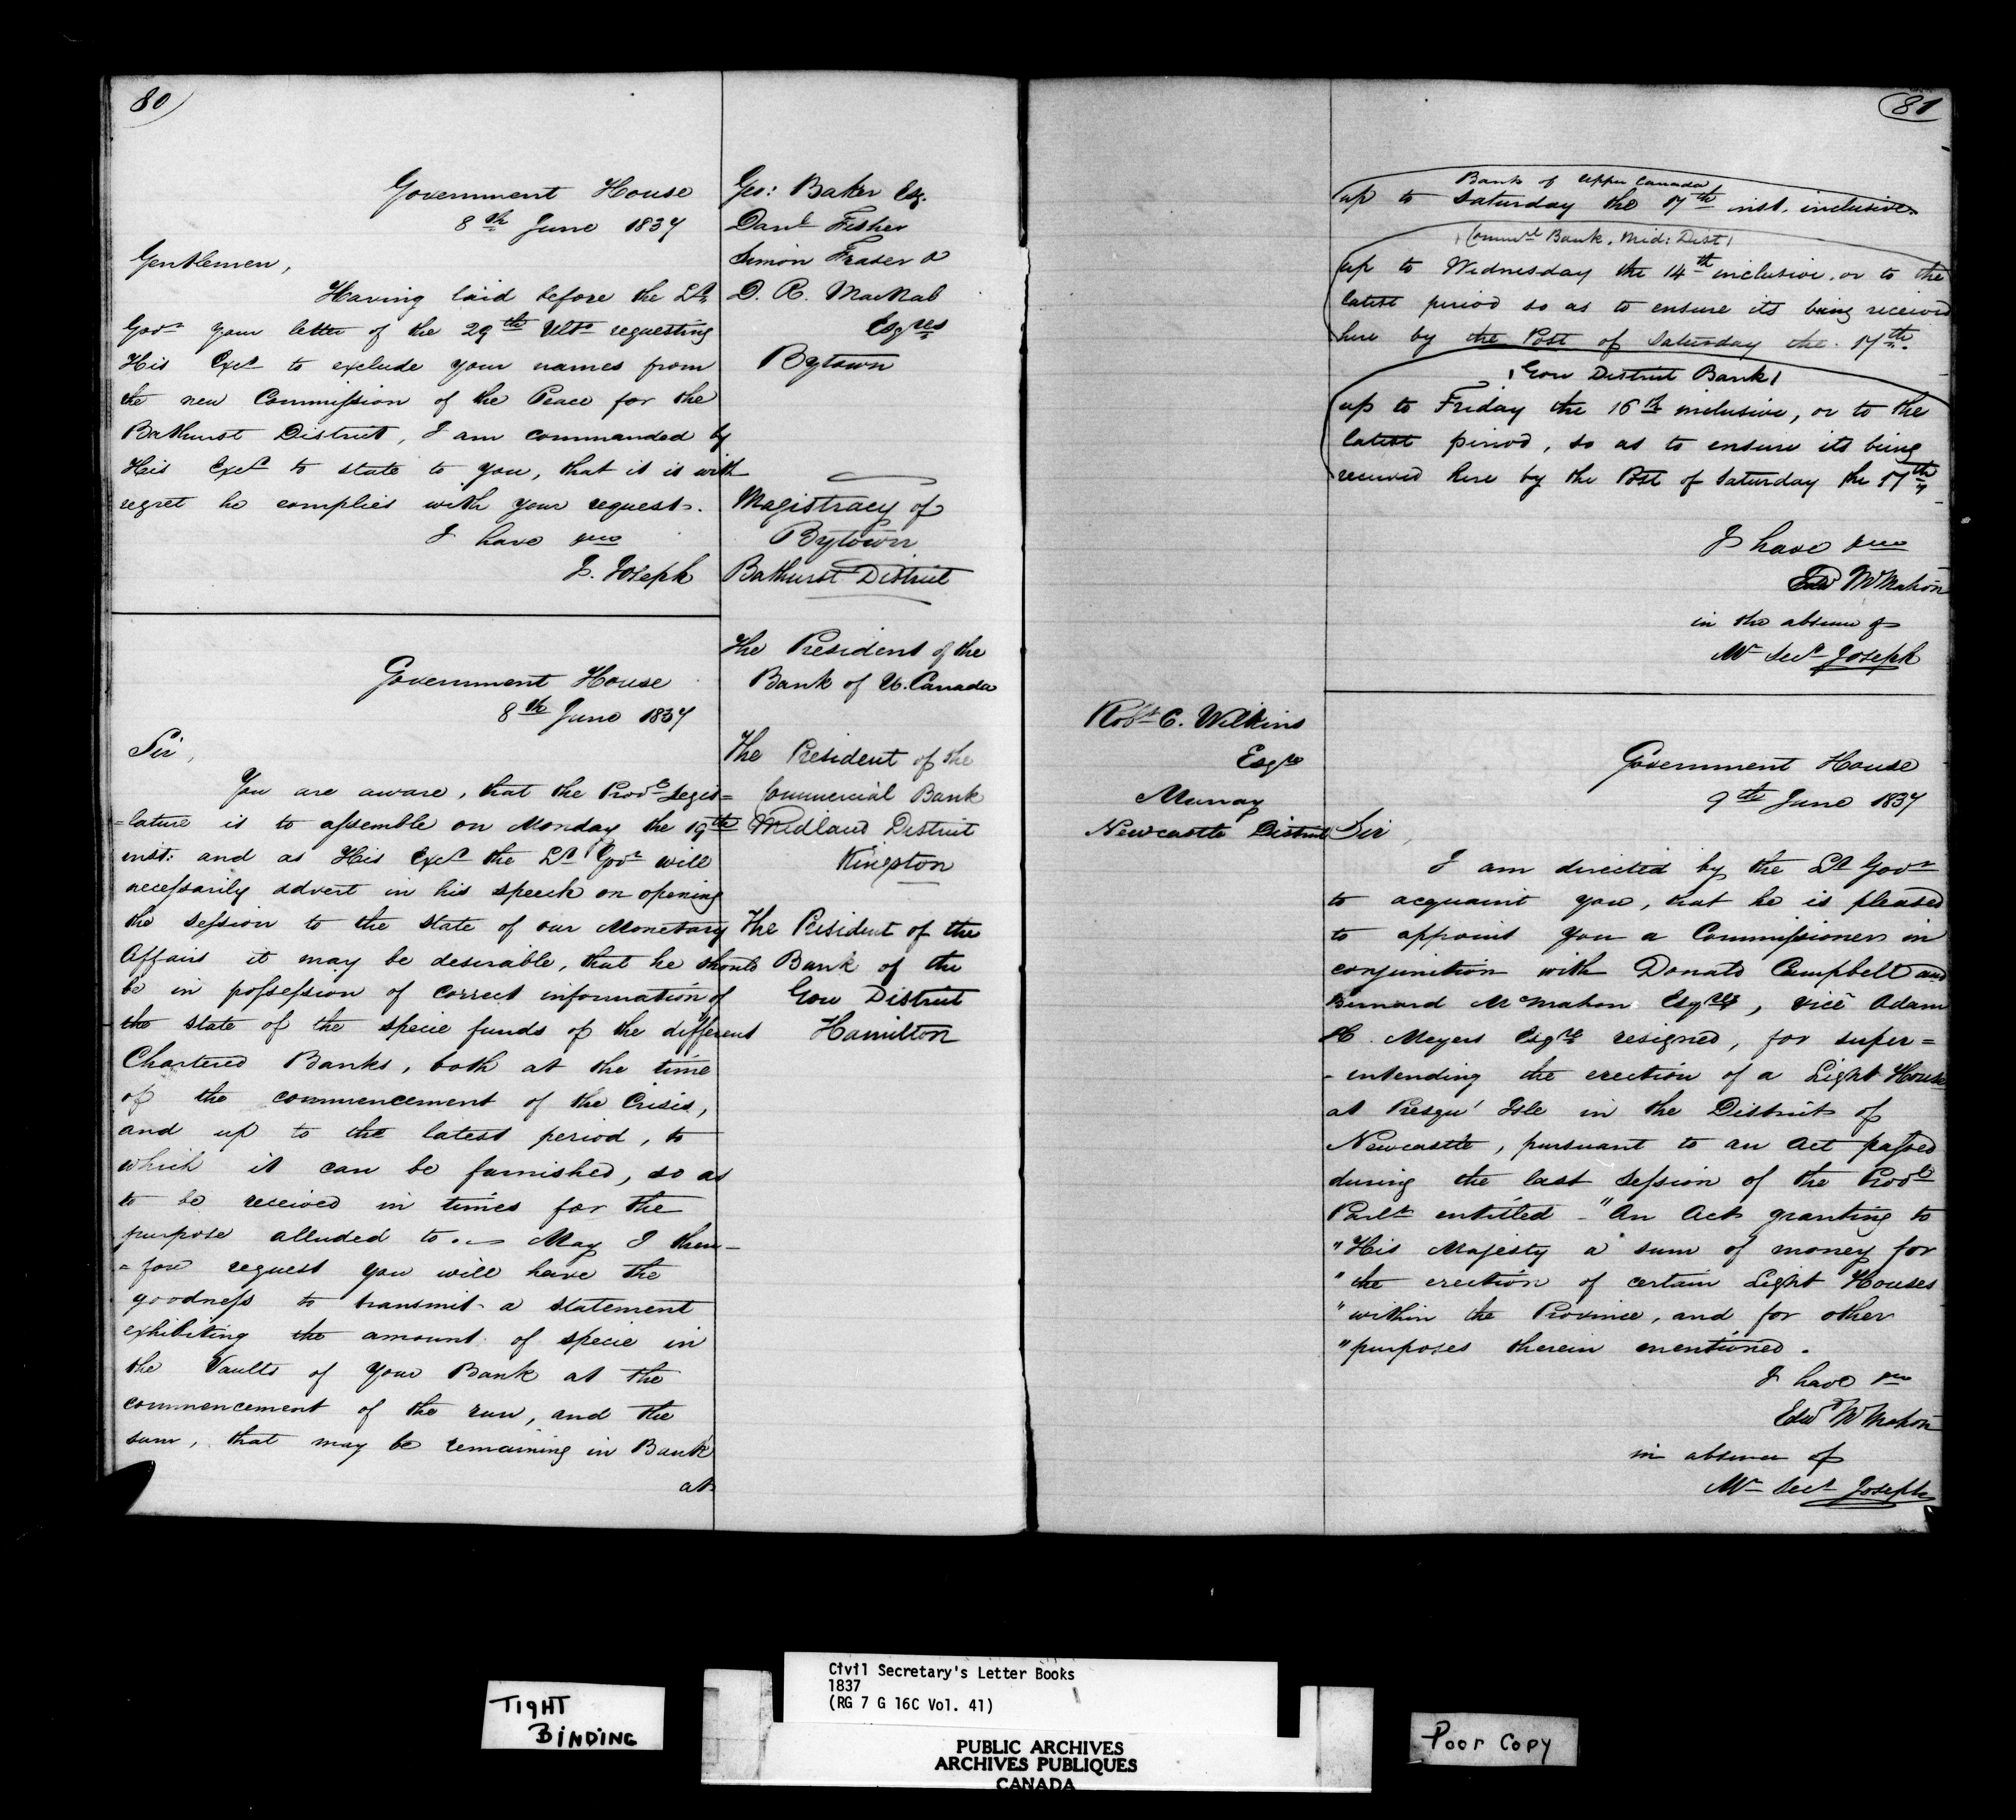 80
Government House
8th June 1837
Gentlemen,
Having laid before the Lt
Govr your letter of the 29th Ulto requesting
His Excy to exclude your names from
the new Commission of the Peace for the
Bathurst District, I am commanded by
His Excy to state to you, that it is with
regret he complies with your request.
I have &ca
J. Joseph
Geo: Baker Esq.
Danl Fisher
Simon Fraser &
D. R. MacNab
Esqres
Bytown
Magistracy of
Bytown
Bathurst District
Government House
8th June 1837
Sir,
You are aware, that the Provl Legis=
=lature is to assemble on Monday the 19th
inst: and as His Excy the Lt Govr will
necessarily advert in his speech on opening
the session to the state of our Monetary
Affairs it may be desirable, that he should
be in possession of correct information of
the state of the specie funds of the different
Chartered Banks, both at the time
of the commencement of the Crisis,
and up to the latest period, to
which it can be furnished, so as
to be received in times for the
purpose alluded to. — May I there=
=fore request you will have the
goodness to transmit a statement
exhibiting the amount of specie in
the Vaults of your Bank at the
commencement of the run, and the
sum, that may be remaining in Bank
at
The President of the
Bank of U. Canada
The President of the
Commercial Bank
Midland District
Kingston
The President of the
Bank of the
Gore District
Hamilton
81
Bank of Upper Canada
up to Saturday the 17th inst. inclusive.
(Commel Bank, Mid: Dist)
up to Wednesday the 14th inclusive, or to the
latest period so as to ensure its being received
here by the Post of Saturday the 17th.
(Gore District Bank)
up to Friday the 16th inclusive, or to the
latest period, so as to ensure its being
received here by the Post of Saturday the 17th,
I have &ca
Edw McMahon
in the absence of
Mr Secy Joseph
Robt C. Wilkins
Esqre
Murray
Newcastle District
Government House
9th June 1837
Sir,
I am directed by the Lt Govr
to acquaint you, that he is pleased
to appoint you a Commissioner in
conjunction with Donald Campbell and
Bernard McMahon Esqres, vice Adam
H. Meyers Esqre resigned, for super=
-intending the erection of a Light House
at Presqu' Isle in the District of
Newcastle, pursuant to an Act passed
during the last Session of the Provl
Parlt entitled - "An Act granting to
"His Majesty a sum of money for
"the erection of certain Light Houses
"within the Province, and for other
"purposes therein mentioned.
I have &ca
Edwd McMahon
in absence of
Mr Secy Joseph
TIGHT
BINDING
Civil Secretary's Letter Books
1837
(RG 7 G 16C Vol. 41)
PUBLIC ARCHIVES
ARCHIVES PUBLIQUES
CANADA
Poor Copy